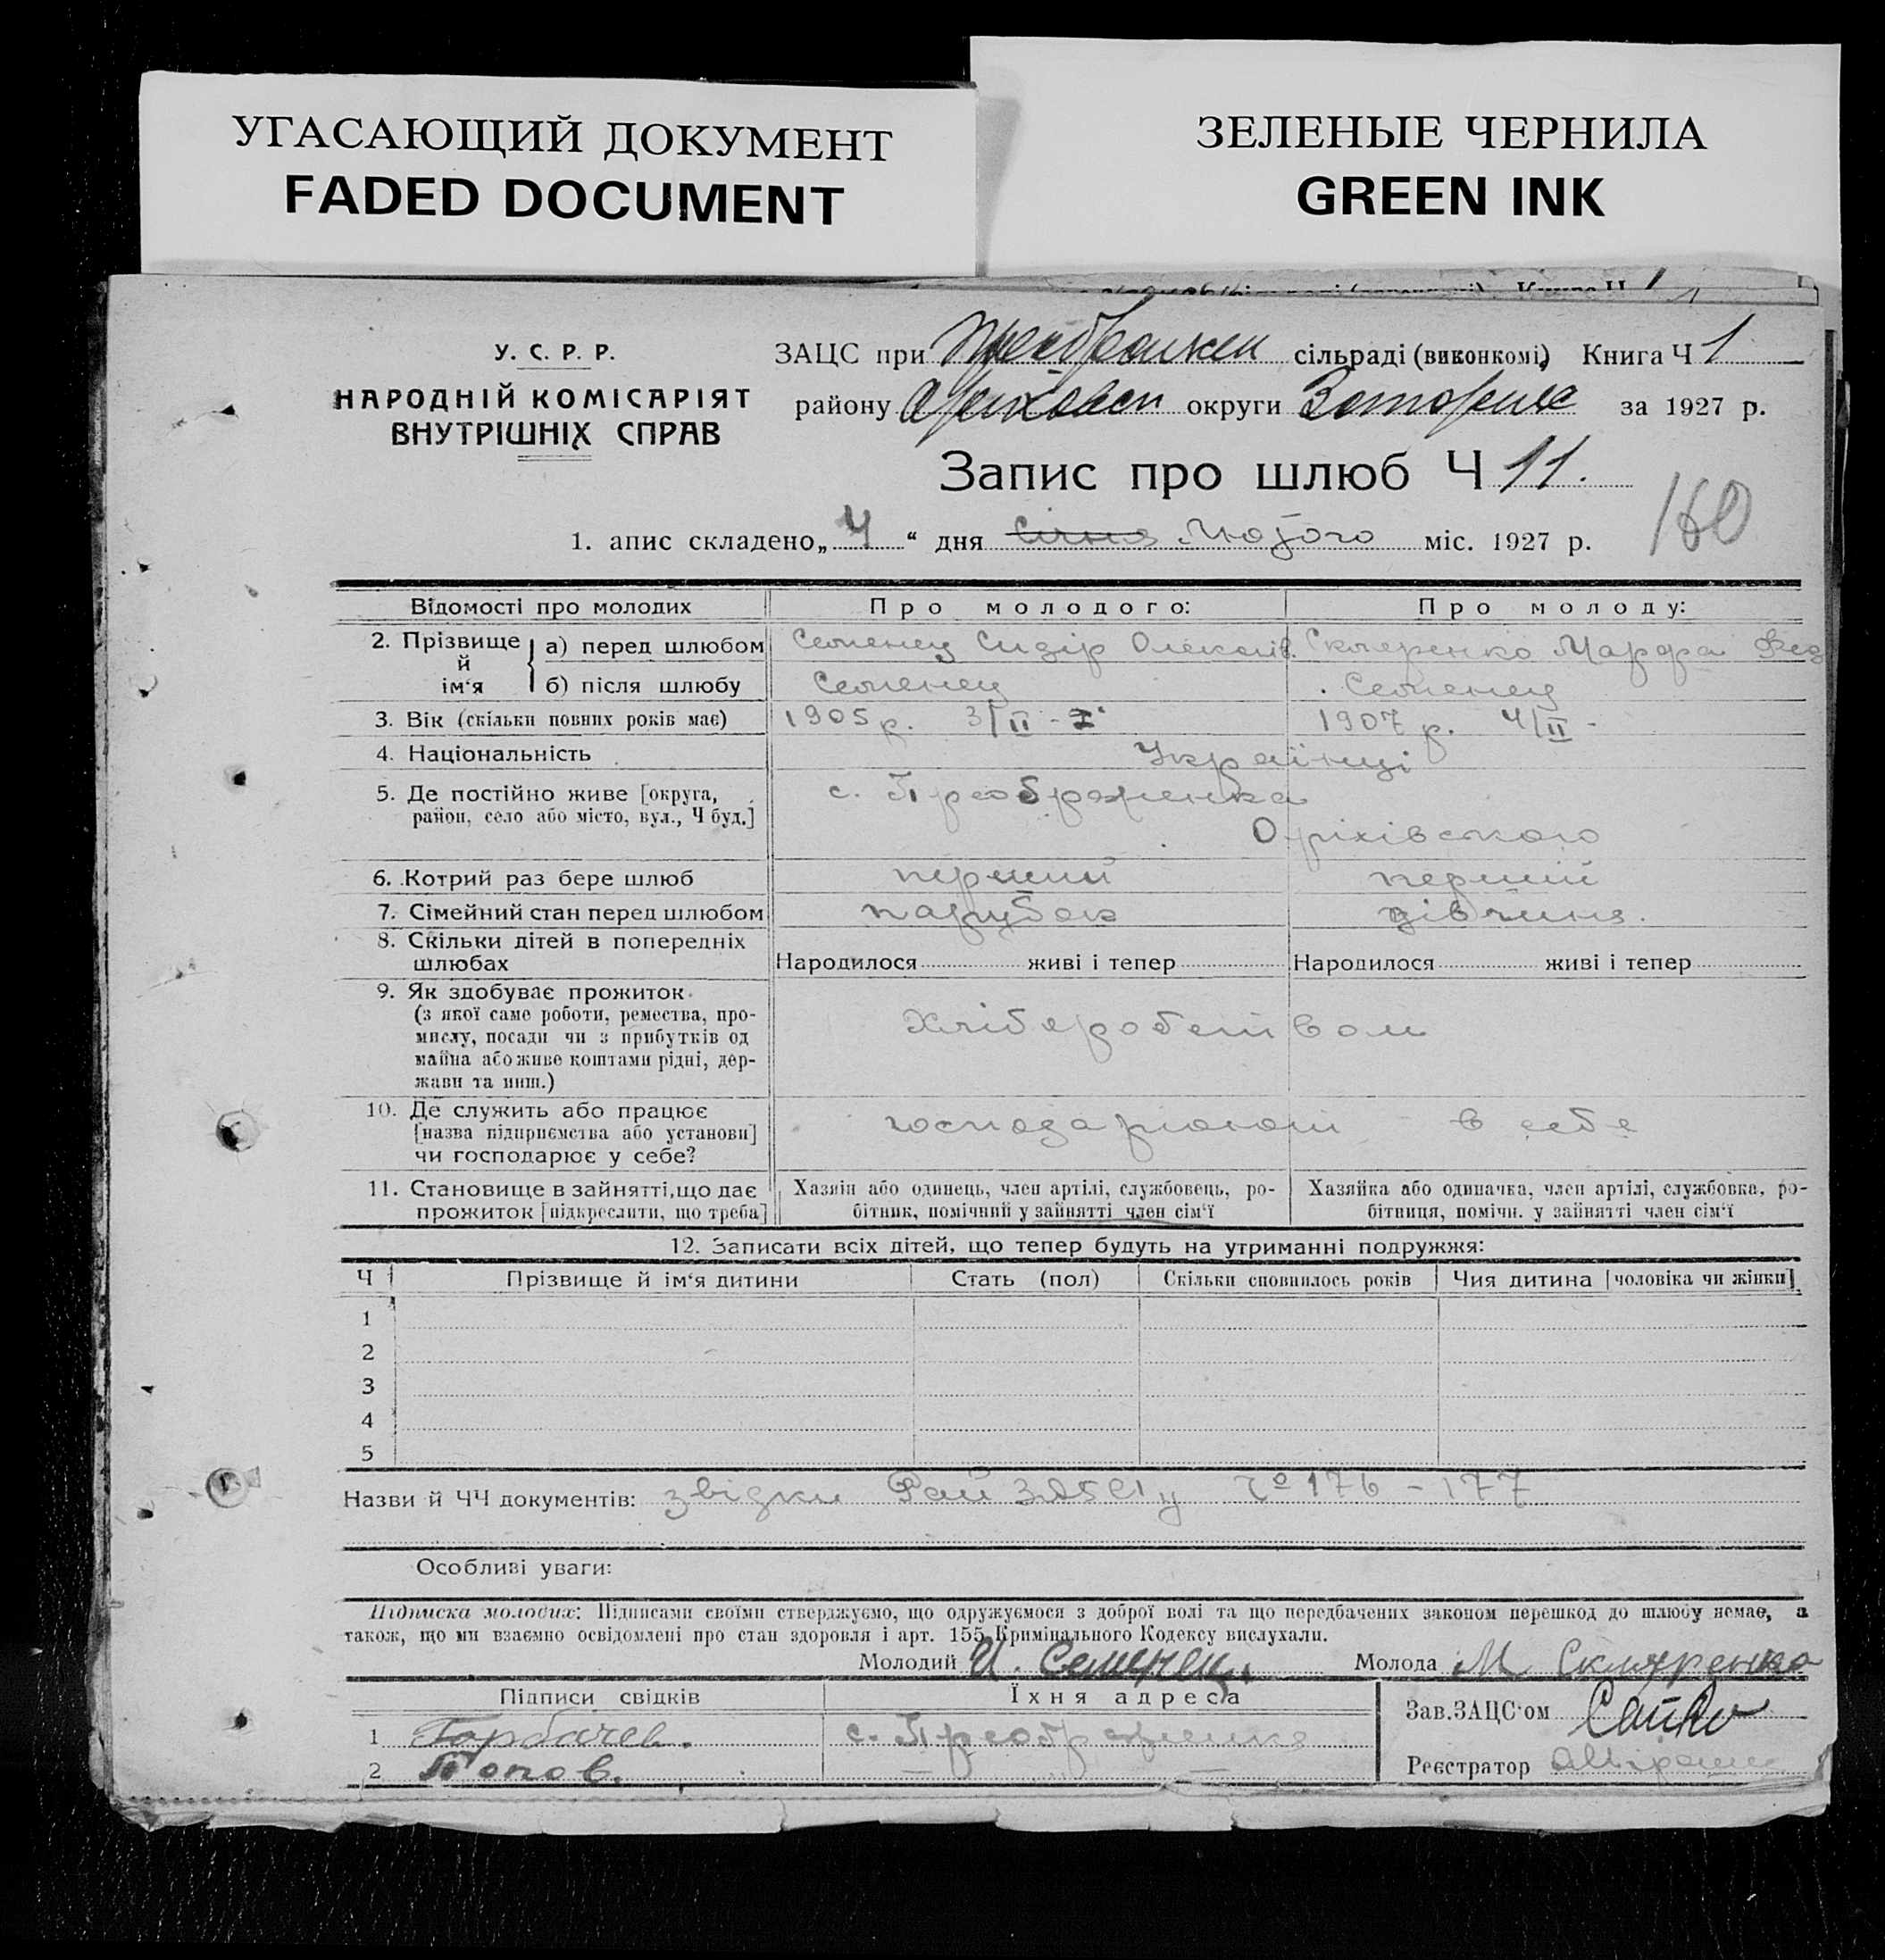 УГАСАЮЩИЙ ДОКУМЕНТ
FADED DOCUMENT
ЗЕЛЕНЫЕ ЧЕРНИЛА
GREEN INK
У. С. Р. Р.
НАРОДНІЙ КОМІСАРІЯТ
ВНУТРІШНІХ СПРАВ
ЗАЦС при Преображен сільраді (виконкомі) Книга Ч 1
району Оріховськ округи Запоріж за 1927 р.
Запис про шлюб Ч 11.
160
1. апис складено „4“ дня Січня Лютого міс. 1927 р.
Відомості про молодих Про молодого: Про молоду:
2. Прізвище й ім‘я а) перед шлюбом Семенец Сидір Олексіїв. Скляренко Марфа Фед
б) після шлюбу Семенец Семенец
3. Вік (скільки повних років має) 1905 р. 3/II 1907 р. 4/II -
4. Національність Українці
5. Де постійно живе [округа, с. Преображенка
район, село або місто, вул., Ч буд.] Оріхівського
6. Котрий раз бере шлюб перший перший
7. Сімейний стан перед шлюбом парубок дівчина.
8. Скільки дітей в попередніх
шлюбах Народилося живі і тепер Народилося живі і тепер
9. Як здобуває прожиток
(з якої саме роботи, ремества, про-
мислу, посади чи з прибутків од Хліборобством
майна або живе коштами рідні, дер-
жави та инш.)
10. Де служить або працює
[назва підприємства або установи] господарюют в себе
чи господарює у себе?
11. Становище в зайнятті, що дає Хазяїн або одинець, член артілі, службовець, ро- Хазяйка або одиначка, член артілі, службовка, ро-
прожиток [підкреслити, що треба] бітник, помічний у зайнятті член сім‘ї бітниця, помічн. у зайнятті член сім‘ї
12. Записати всіх дітей, що тепер будуть на утриманні подружжя:
Ч Прізвище й ім‘я дитини Стать (пол) Скільки сповнилось років Чия дитина [чоловіка чи жінки]
1
2
3
4
5
Назви й ЧЧ документів: звідки Рай ЗАГСу № 176 - 177
Особливі уваги:
Підписка молодих: Підписами своїми стверджуємо, що одружуємося з доброї волі та що передбачених законом перешкод до шлюбу немає, а
також, що ми взаємно освідомлені про стан здоровля і арт. 155 Кримінального Кодексу вислухали.
Молодий Семенец Молода М Скляренко
Підписи свідків Їхня адреса
Зав. ЗАЦС‘ом
1 Горбачев. с. Преображенка
2 Попов. — —
Реєстратор